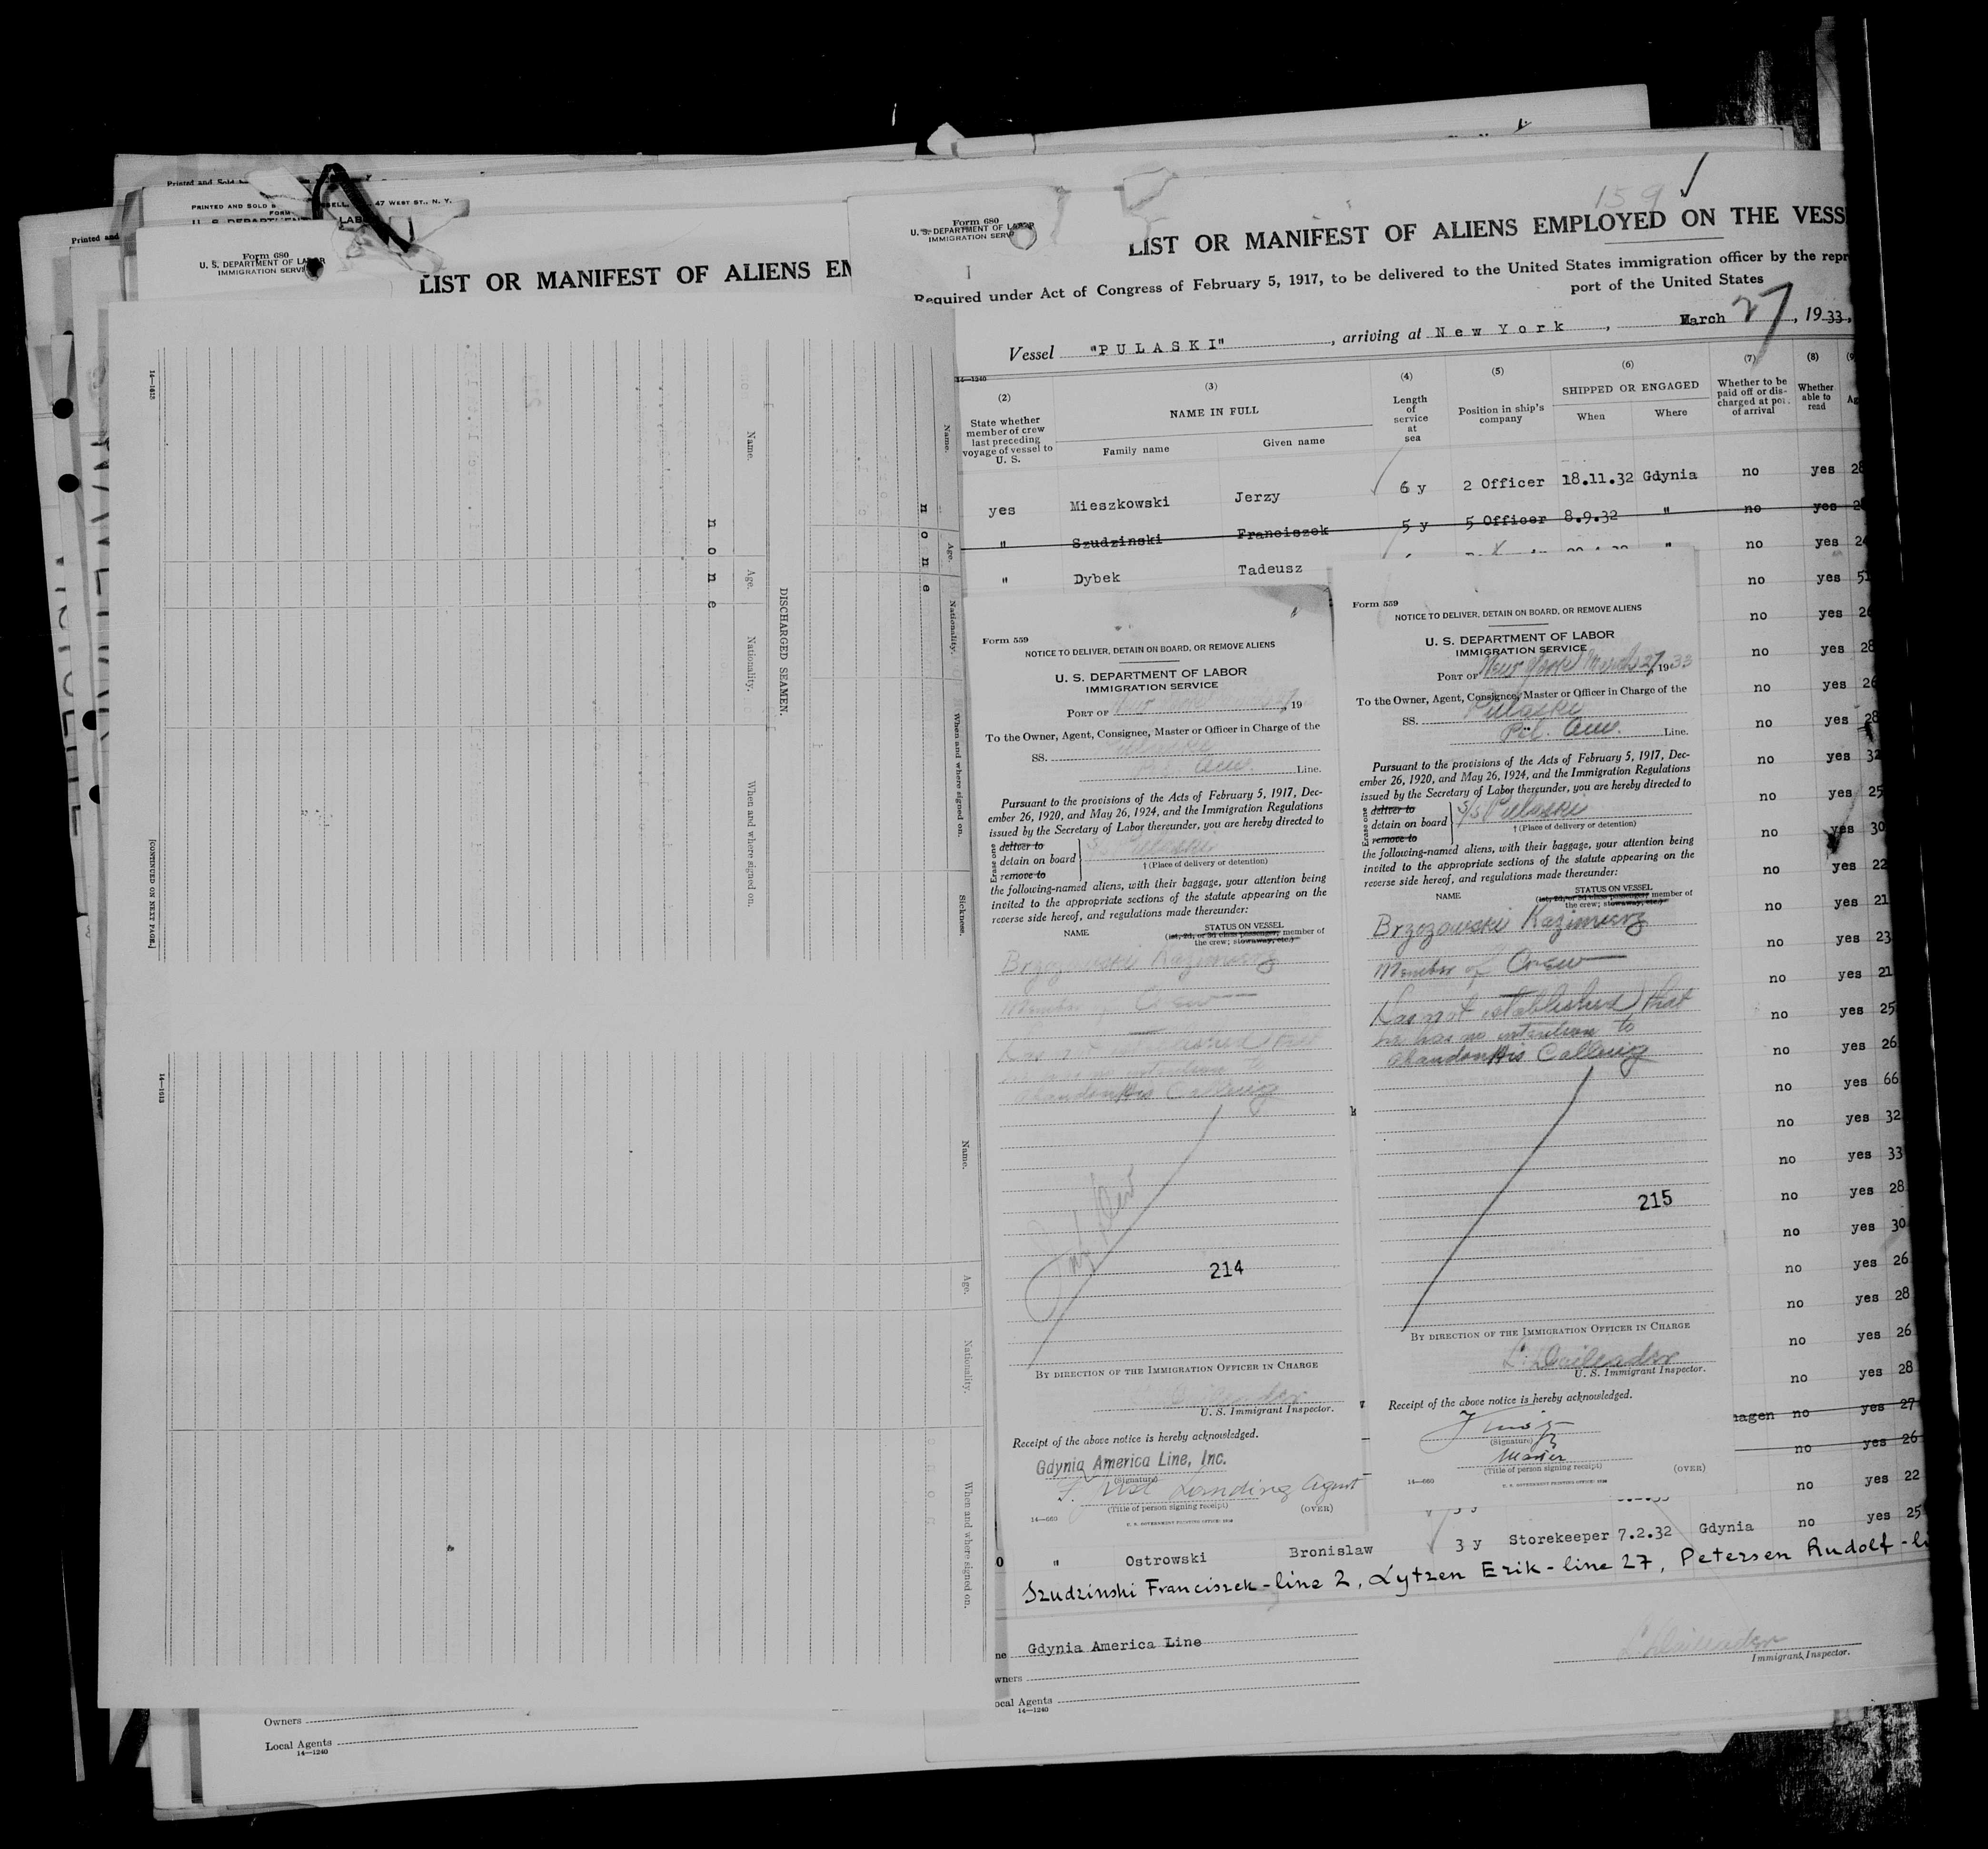 Printed and
PRINTED AND SOLD
47 WEST ST., N. Y.
FORM
Form 680
U. S. DEPARTMENT OF LABOR
IMMIGRATION SERVI
LIST OR MANIFEST OF ALIENS EM
14—1240
Form 680
U. S. DEPARTMENT OF LABOR
IMMIGRATION SERV
159
LIST OR MANIFEST OF ALIENS EMPLOYED ON THE VESS
Required under Act of Congress of February 5, 1917, to be delivered to the United States immigration officer by the repr
port of the United States
Vessel "PULASKI", arriving at New York, March 27, 1933,
(2) (3) (4) (5) (6) (7) (8)
State whether member of crew last preceding voyage of vessel to U. S.
NAME IN FULL
Family name Given name
Length of service at sea
Position in ship's company
SHIPPED OR ENGAGED
When Where
Whether to be paid off or discharged at port of arrival
Whether able to read
yes Mieszkowski Jerzy 6 y 2 Officer 18.11.32 Gdynia no yes 28
" Szudzinski Franciszek 5 y 5 Officer 8.9.32 " no yes
" Dybek Tadeusz " no yes 24
no yes 51
no yes 26
no yes 28
no yes 26
no yes 28
no yes 32
no yes 25
no yes 30
no yes 22
no yes 21
no yes 23
no yes 21
no yes 25
no yes 26
no yes 66
no yes 32
no yes 33
no yes 28
no yes 30
no yes 26
no yes 28
no yes 26
no yes 28
hagen no yes 27
no yes 26
no yes 22
" Ostrowski Bronislaw 3 y Storekeeper 7.2.32 Gdynia no yes 25
Szudzinski Franciszek - line 2, Lytzen Erik - line 27, Petersen Rudolf - li
Gdynia America Line
wners
ocal Agents
14—1240
Immigrant Inspector.
Form 559
NOTICE TO DELIVER, DETAIN ON BOARD, OR REMOVE ALIENS
U. S. DEPARTMENT OF LABOR
IMMIGRATION SERVICE
PORT OF New York 27, 19
To the Owner, Agent, Consignee, Master or Officer in Charge of the
SS. Pulaski
Am. Line.
Pursuant to the provisions of the Acts of February 5, 1917, Dec-
ember 26, 1920, and May 26, 1924, and the Immigration Regulations
issued by the Secretary of Labor thereunder, you are hereby directed to
Erase one
deliver to
detain on board S/S Pulaski
remove to
† (Place of delivery or detention)
the following-named aliens, with their baggage, your attention being
invited to the appropriate sections of the statute appearing on the
reverse side hereof, and regulations made thereunder:
NAME STATUS ON VESSEL
(1st, 2d, or 3d class passenger, member of
the crew; stowaway, etc.)
Brzozowski Kazimierz
Member of Crew
has not established that
he has no intention to
abandon his Calling
214
BY DIRECTION OF THE IMMIGRATION OFFICER IN CHARGE
U. S. Immigrant Inspector.
Receipt of the above notice is hereby acknowledged.
Gdynia America Line, Inc.
(Signature)
Landing Agent
(Title of person signing receipt)
(OVER)
14—660
U. S. GOVERNMENT PRINTING OFFICE
Form 559
NOTICE TO DELIVER, DETAIN ON BOARD, OR REMOVE ALIENS
U. S. DEPARTMENT OF LABOR
IMMIGRATION SERVICE
PORT OF New York March 27, 1933
To the Owner, Agent, Consignee, Master or Officer in Charge of the
SS. Pulaski
Pol. Am. Line.
Pursuant to the provisions of the Acts of February 5, 1917, Dec-
ember 26, 1920, and May 26, 1924, and the Immigration Regulations
issued by the Secretary of Labor thereunder, you are hereby directed to
Erase one
deliver to
detain on board S/S Pulaski
remove to
† (Place of delivery or detention)
the following-named aliens, with their baggage, your attention being
invited to the appropriate sections of the statute appearing on the
reverse side hereof, and regulations made thereunder:
NAME STATUS ON VESSEL
(1st, 2d, or 3d class passenger, member of
the crew; stowaway, etc.)
Brzozowski Kazimierz
Member of Crew
has not established that
he has no intention to
abandon his Calling
215
BY DIRECTION OF THE IMMIGRATION OFFICER IN CHARGE
U. S. Immigrant Inspector.
Receipt of the above notice is hereby acknowledged.
(Signature)
Master
(Title of person signing receipt)
(OVER)
14—660
U. S. GOVERNMENT PRINTING OFFICE
Name. Age. Nationality. When and where signed on. Sickness.
none
DISCHARGED SEAMEN.
Name. Age. Nationality. When and where signed on.
none
[CONTINUED ON NEXT PAGE.]
Name. Age. Nationality. When and where signed on.
Owners
Local Agents
14—1240